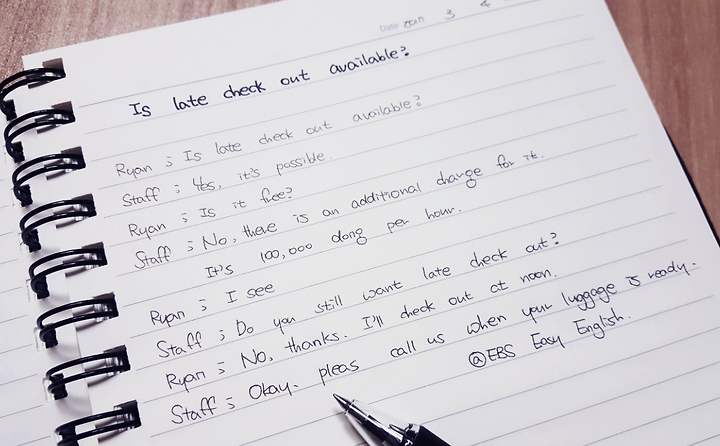 Date 2017 3 4
Is late check out available?
Ryan ; Is late check out available?
Staff ; Yes, it's possible.
Ryan ; Is it free?
Staff ; No, there is an additional charge for it.
It's 100,000 dong per hour.
Ryan ; I see
Staff ; Do you still want late check out?
Ryan ; No, thanks. I'll check out at noon.
Staff ; Okay. pleas call us when your luggage is ready.
@EBS Easy English.